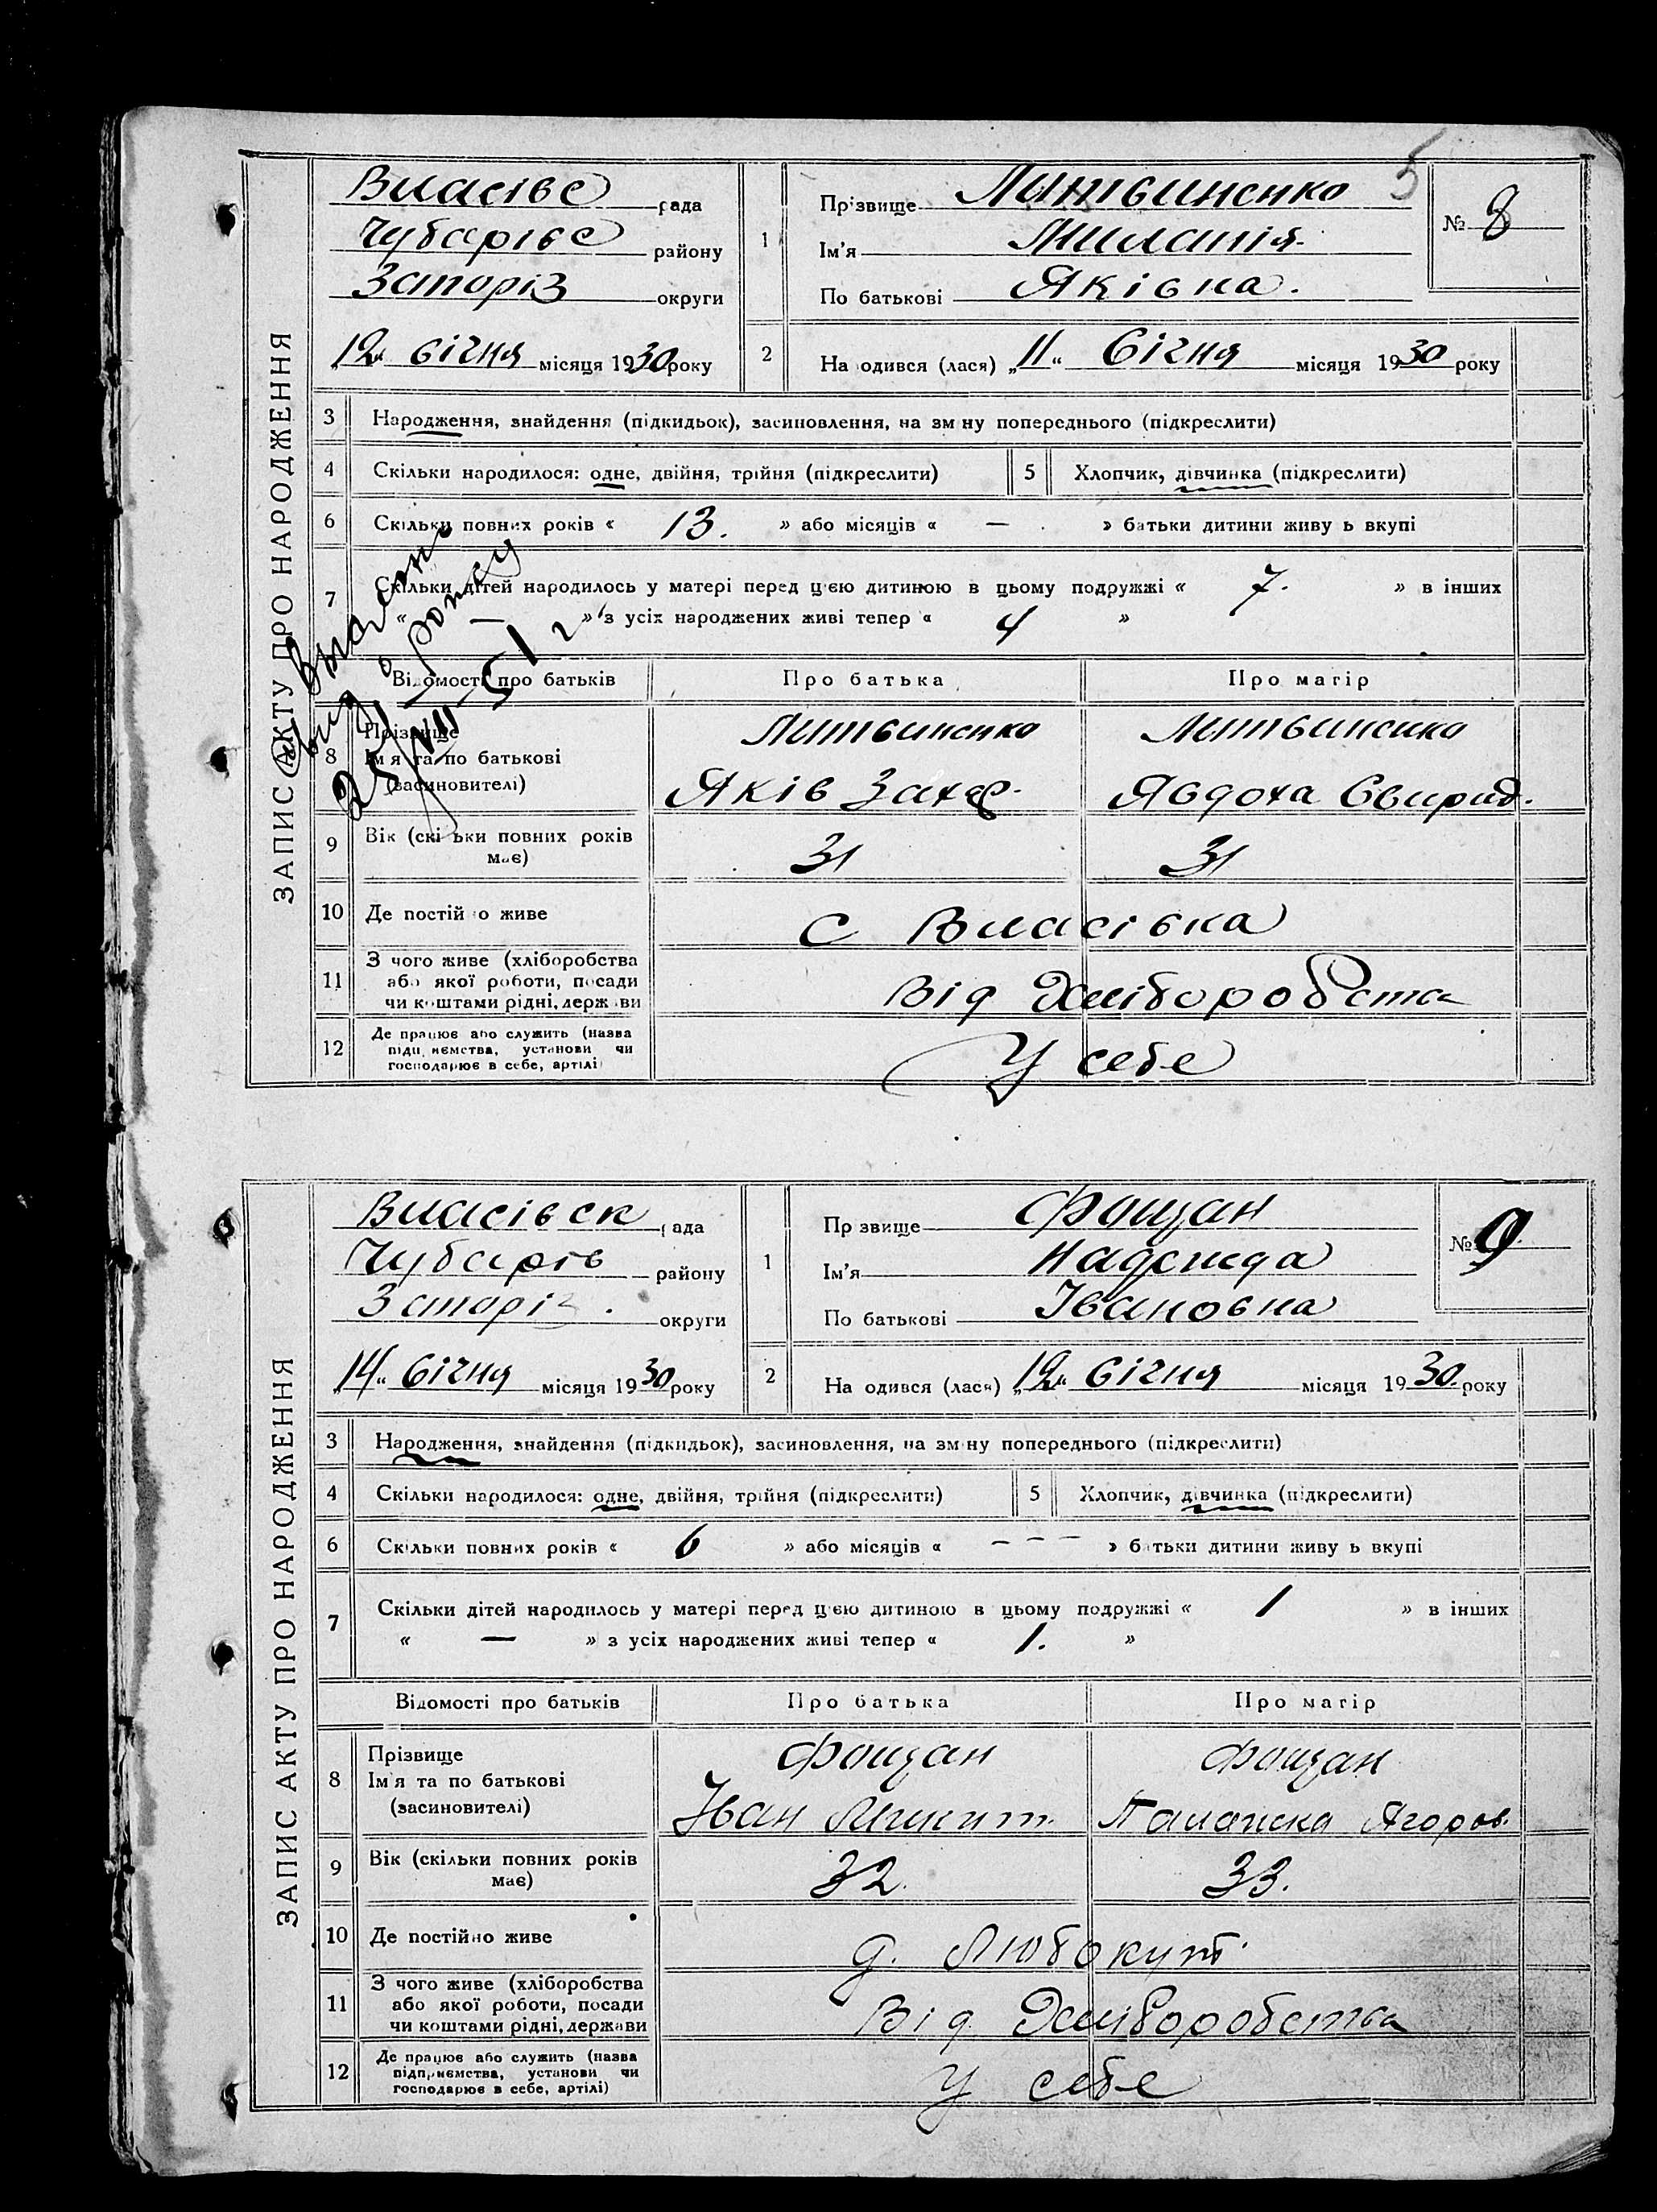 5
ЗАПИС АКТУ ПРО НАРОДЖЕННЯ
Власівс рада
Чубарівс району
Запоріз округи
„12“ січня місяця 1930 року
1 Прізвище Литвиненко
Ім'я Миланія
По батькові Яківна.
№ 8
2 На одився (лася) „11“ Січня місяця 1930 року
3 Народження, знайдення (підкидьок), засиновлення, на зм ну попереднього (підкреслити)
4 Скільки народилося: одне, двійня, трійня (підкреслити) 5 Хлопчик, дівчинка (підкреслити)
6 Скільки повних років « 13. » або місяців « — » батьки дитини живу ь вкупі
7 Скільки дітей народилось у матері перед цією дитиною в цьому подружжі « 7. » в інших
« — » з усіх народжених живі тепер « 4 »
Відомості про батьків Про батька Про матір
8 Прізвище Литвиненко Литвиненко
Ім'я та по батькові Яків Захар. Явдоха Свирид.
(засиновителі)
9 Вік (скі ьки повних років має) 31 31
10 Де постій о живе с Власівка
11 З чого живе (хліборобства
або якої роботи, посади Від Хліборобства
чи коштами рідні, держави
12 Де працює або служить (назва
підприємства, установи чи У себе
господарює в себе, артілі)
ЗАПИС АКТУ ПРО НАРОДЖЕННЯ
Власівск рада
Чубарів району
Запоріз. округи
„14“ Січня місяця 1930 року
1 Пр звище Фощан
Ім'я Надежда
По батькові Івановна
№ 9
2 На одився (лася) „12“ Січня місяця 1930. року
3 Народження, знайдення (підкидьок), засиновлення, на зміну попереднього (підкреслити)
4 Скільки народилося: одне, двійня, трійня (підкреслити) 5 Хлопчик, дівчинка (підкреслити)
6 Скільки повних років « 6 » або місяців « — — — » батьки дитини живу ь вкупі
7 Скільки дітей народилось у матері перед цією дитиною в цьому подружжі « 1 » в інших
« — » з усіх народжених живі тепер « 1. »
Відомості про батьків Про батька Про матір
8 Прізвище Фощан Фощан
Ім'я та по батькові Іван Микит. Палажка Ягоров.
(засиновителі)
9 Вік (скільки повних років має) 32. 33.
10 Де постійно живе д. Любокут
11 З чого живе (хліборобства
або якої роботи, посади Від Хліборобства
чи коштами рідні, держави
12 Де працює або служить (назва
підприємства, установи чи У себе
господарює в себе, артілі)